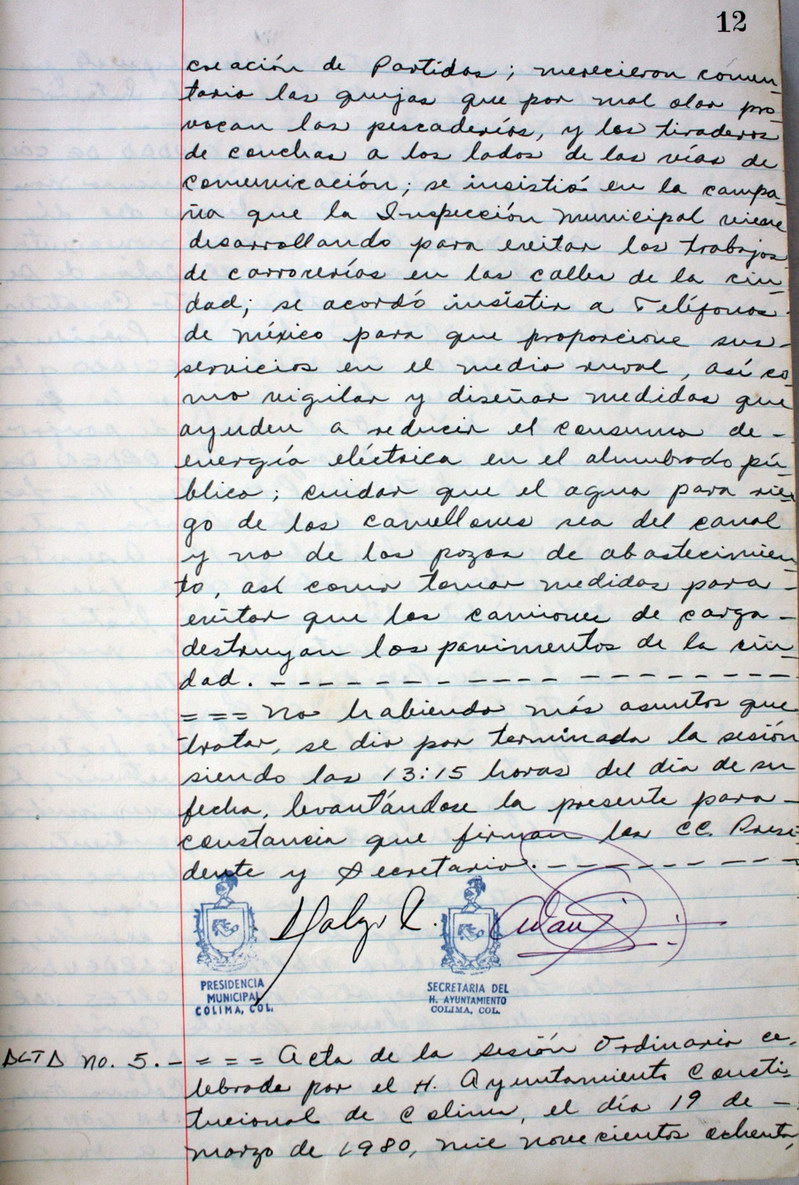 12
creación de Partidos; merecieron comen-
tario las quejas que por mal olor pro-
vocan las pescaderías, y los tiraderos
de conchas a los lados de las vías de
comunicación; se insistió en la campa-
ña que la Inspección Municipal viene
desarrollando para evitar los trabajos
de carrocerías en las calles de la ciu-
dad; se acordó insistir a Teléfonos-
de México para que proporcione sus-
servicios en el medio rural, así co-
mo vigilar y diseñar medidas que
ayuden a reducir el consumo de-
energía eléctrica en el alumbrado pú-
blico; cuidar que el agua para rie-
go de los camellones sea del canal
y no de los pozos de abastecimien-
to, así como tomar medidas para-
evitar que los camiones de carga-
destruyan los pavimentos de la ciu-
dad. - - - - - - - - - - - - - - - -
= = = No habiendo más asuntos que
tratar, se dio por terminada la sesión
siendo las 13:15 horas del día de su
fecha, levantándose la presente para-
constancia que firman los CC. Presi-
dente y Secretario. - - - - - - - -
PRESIDENCIA
MUNICIPAL
COLIMA, COL.
SECRETARIA DEL
H. AYUNTAMIENTO
COLIMA, COL.
ACTA No. 5.- = = = Acta de la sesión Ordinaria ce-
lebrada por el H. Ayuntamiento Consti-
tucional de Colima, el día 19 de-
marzo de 1980, mil novecientos ochenta,